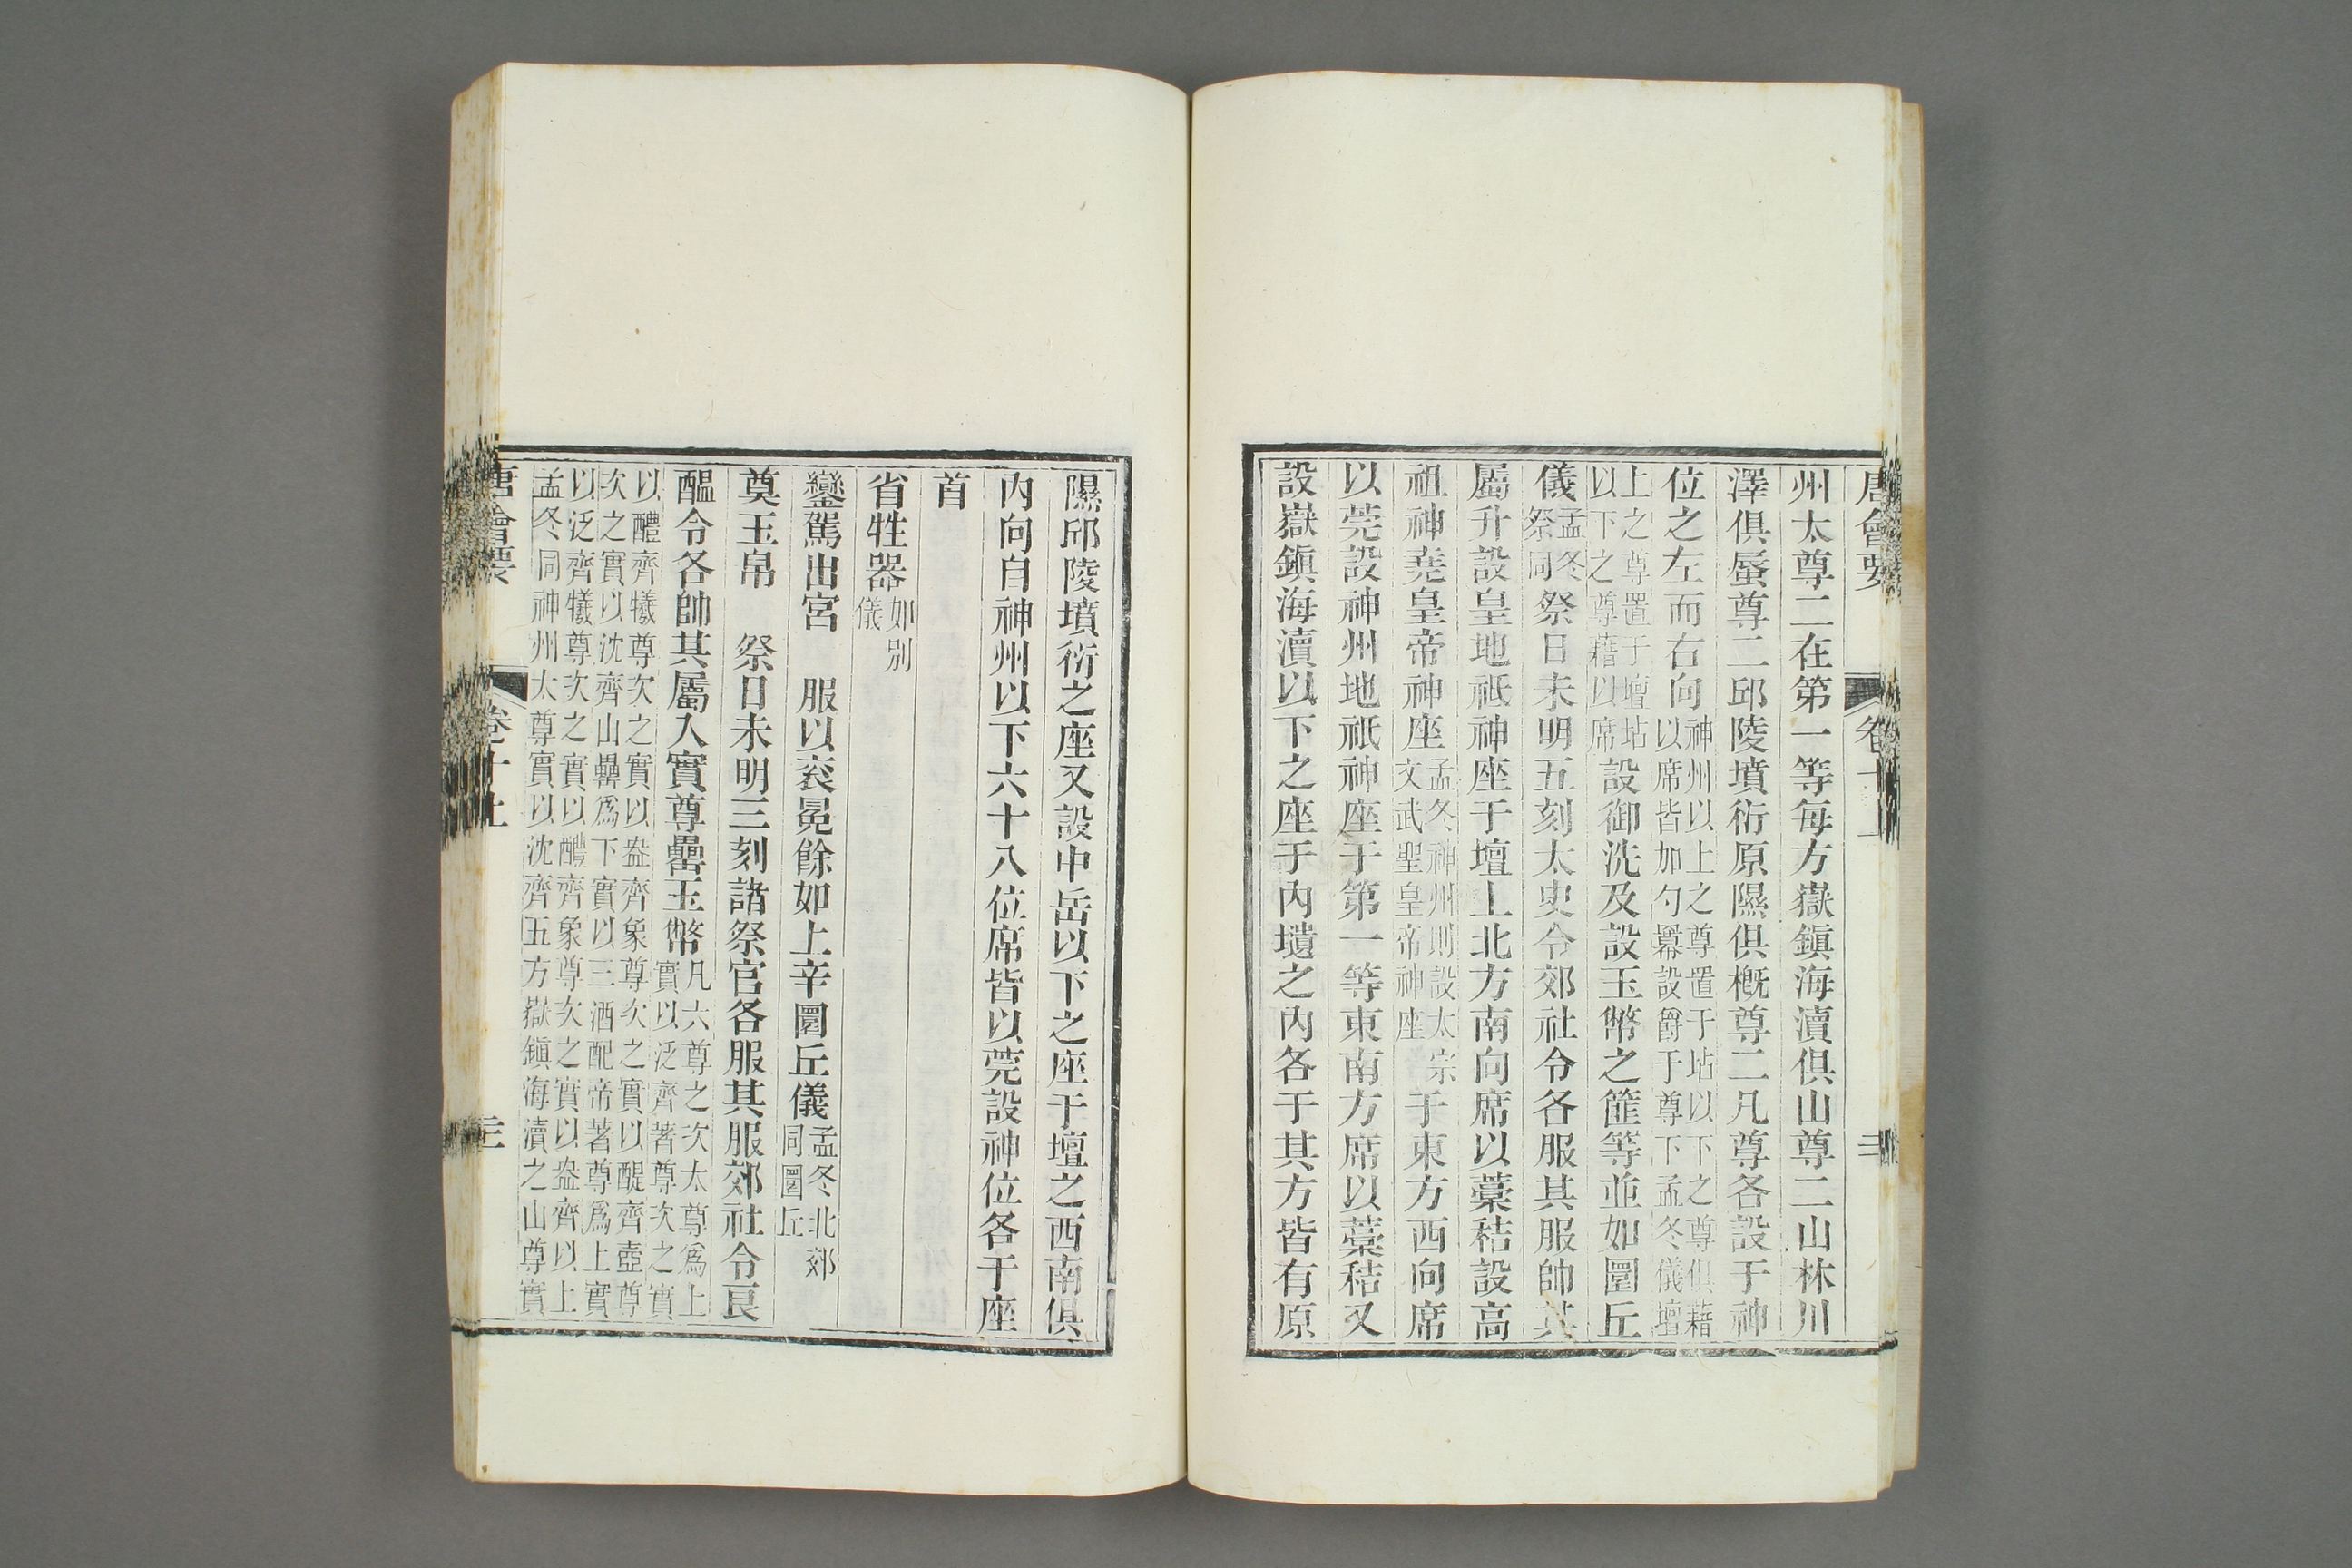 唐會要 卷十上 二
州太尊二在第一等每方嶽鎮海瀆俱山尊二山林川
澤俱蜃尊二邱陵墳衍原隰俱概尊二凡尊各設于神
位之左而右向神州以上之尊置于坫以下之尊俱藉以席皆加勺羃設爵于尊下孟冬儀壇
上之尊置于壇坫以下之尊藉以席設御洗及設玉幣之篚等並如圜丘
儀孟冬祭同祭日未明五刻太史令郊社令各服其服帥其
屬升設皇地祗神座于壇上北方南向席以藁秸設高
祖神堯皇帝神座孟冬神州則設太宗文武聖皇帝神座于東方西向席
以莞設神州地祇神座于第一等東南方席以藁秸又
設嶽鎮海瀆以下之座于內壝之內各于其方皆有原
隰邱陵墳衍之座又設中岳以下之座于壇之西南俱
內向自神州以下六十八位席皆以莞設神位各于座
首
省牲器如別儀
鑾駕出宮 服以袞冕餘如上辛圜丘儀孟冬北郊同圜丘
奠玉帛 祭日未明三刻諸祭官各服其服郊社令良
醞令各帥其屬入實尊罍玉幣凡六尊之次太尊爲上實以泛齊著尊次之實
以醴齊犧尊次之實以盎齊象尊次之實以醍齊壺尊次之實以沈齊山罍爲下實以三酒配帝著尊爲上實
以泛齊犧尊次之實以醴齊象尊次之實以盎齊以上孟冬同神州太尊實以沈齊五方嶽鎮海瀆之山尊實
唐會要 卷十上 三